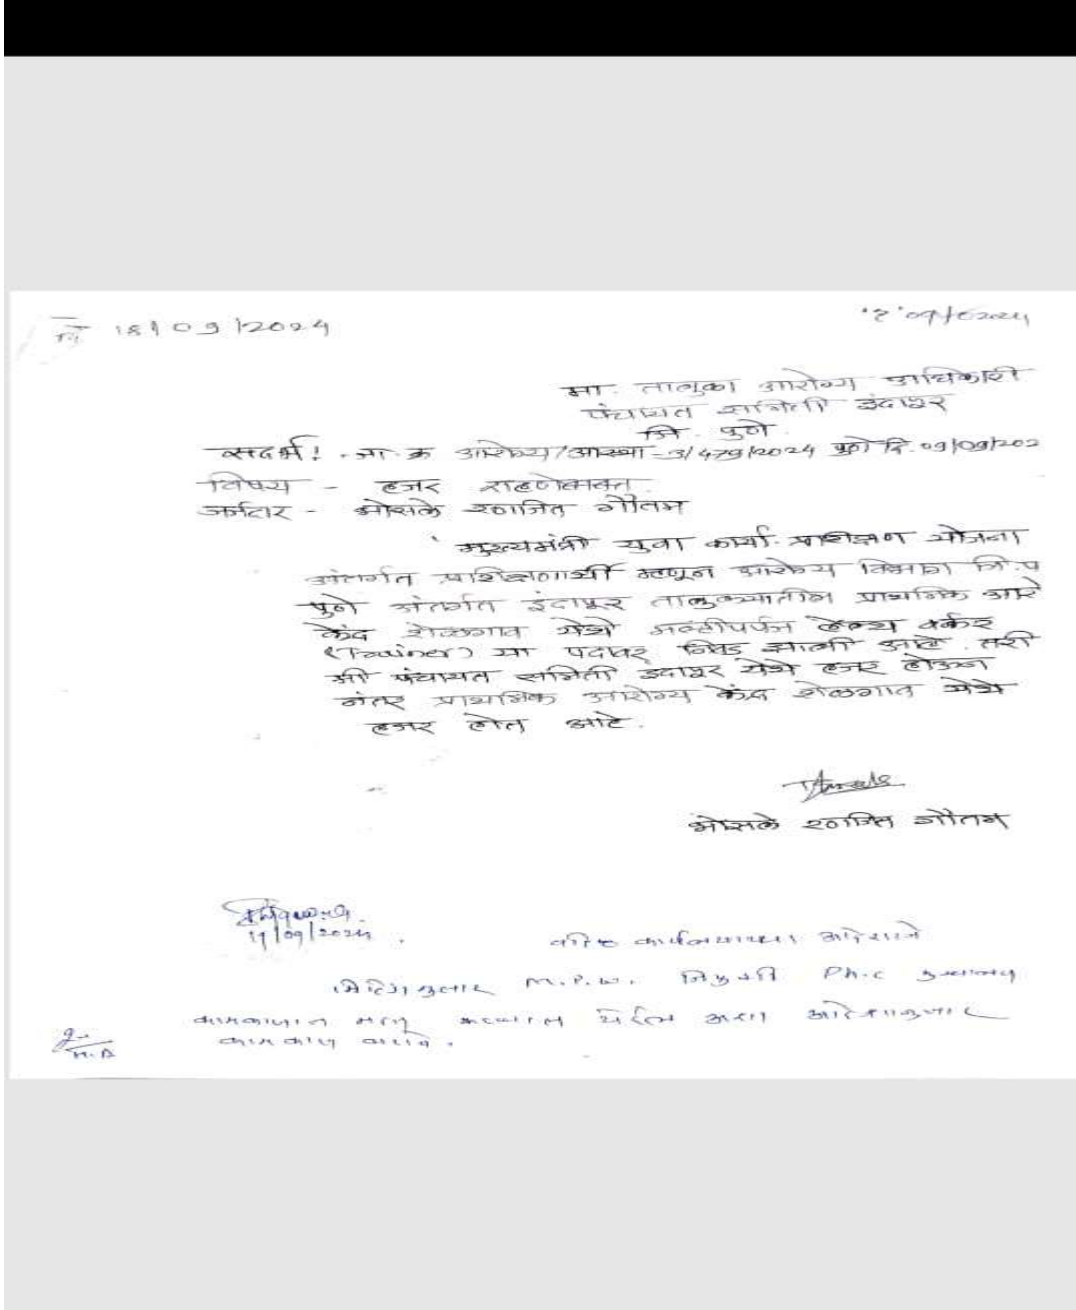 18/09/2024
मा. तालुका आरोग्य अधिकारी
पंचायत समिती इंदापूर
जि. पुणे.
संदर्भ! - जा. क्र आरोग्य/आस्था-3/479/2024 पुणे दि. 09/09/202
विषय - हजर राहणेबाबत.
अर्जदार - भोसले रणजित गौतम
मुख्यमंत्री युवा कार्य. प्रशिक्षण योजना
अंतर्गत प्रशिक्षणार्थी म्हणून आरोग्य विभाग जि.प
पुणे अंतर्गत इंदापूर तालुक्यातील प्राथमिक आरो
केंद्र शेळगाव येथे मल्टीपर्पज हेल्थ वर्कर
(Trainer) या पदावर निवड झाली आहे. तरी
मी पंचायत समिती इंदापूर येथे हजर होऊन
नंतर प्राथमिक आरोग्य केंद्र शेळगाव येथे
हजर होत आहे.
भोसले रणजित गौतम
19/09/2024
वरिष्ठ कार्यालयाच्या आदेशाने
M.P.W. PH.C
आदेशानुसार
कामकाज करावे.